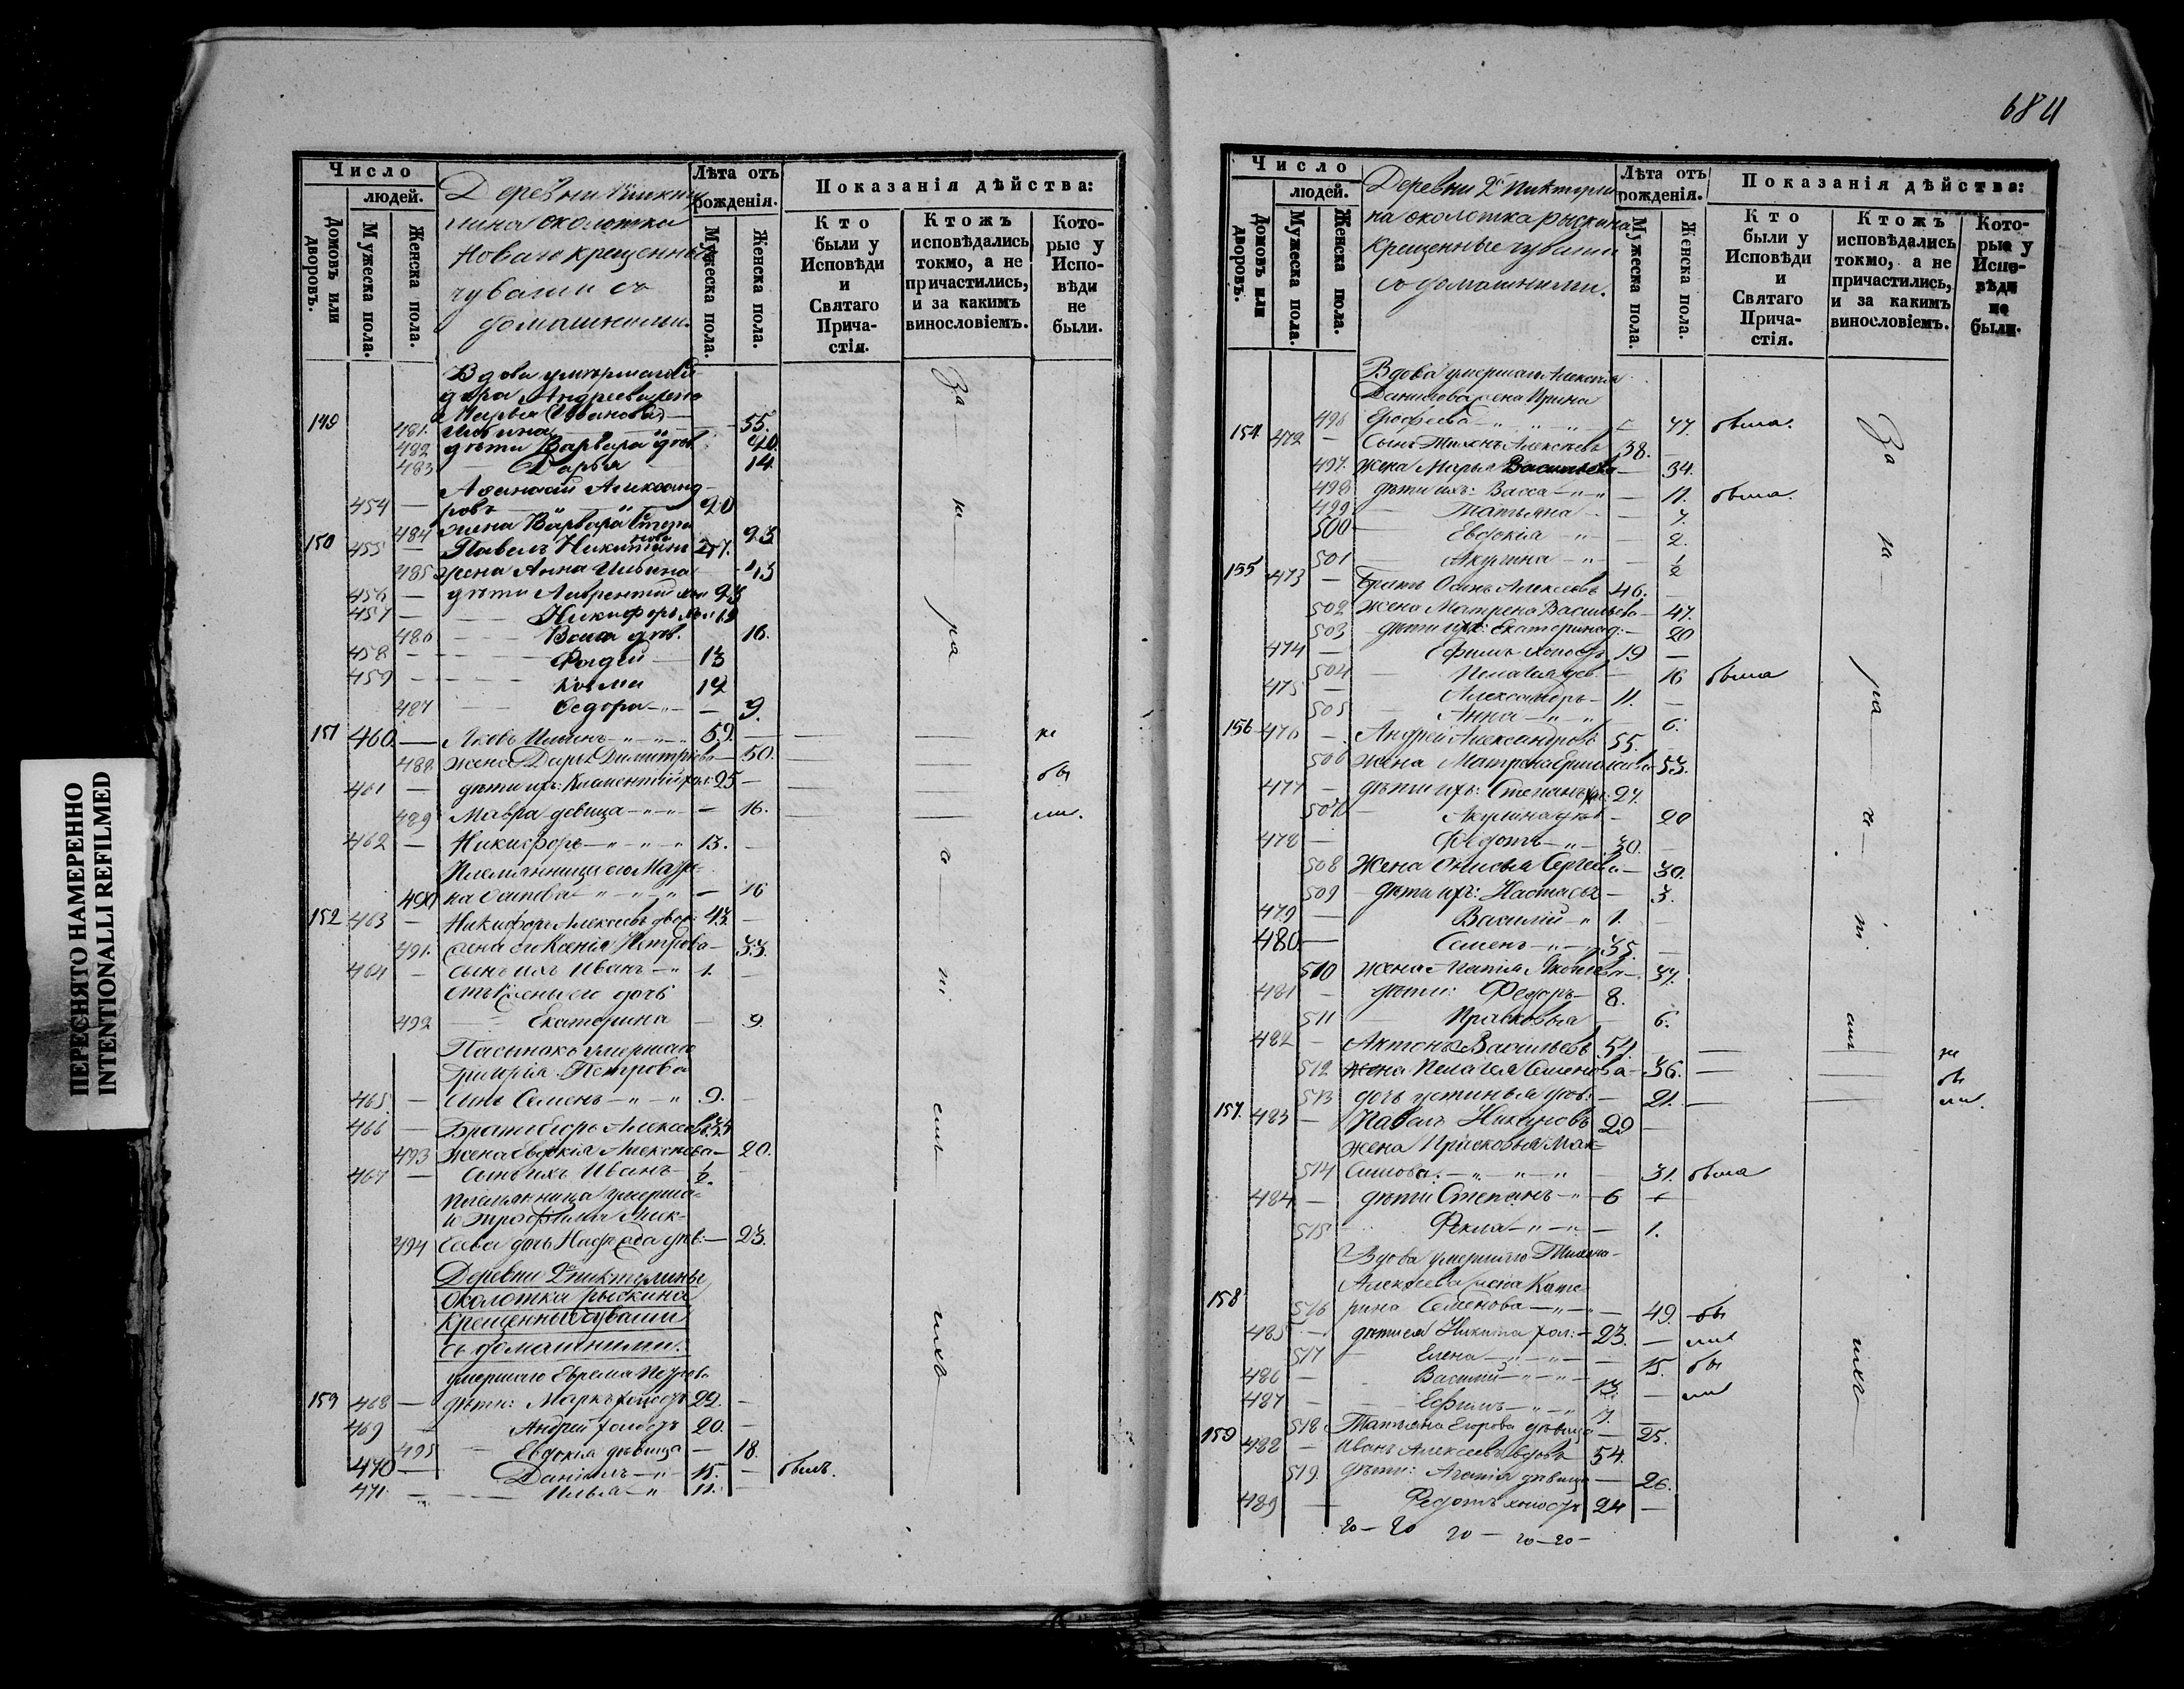 ПЕРЕСНЯТО НАМЕРЕННО
INTENTIONALLI REFILMED
Число
людей.
Домовъ или дворовъ.
Мужеска пола.
Женска пола.
Деревни
околотка
Новаго крещенные
чуваши съ
домашними.
Лѣта отъ рожденія.
Мужеска пола.
Женска пола.
Показанія дѣйства:
Кто были у Исповѣди и Святаго Причастія.
Ктожъ исповѣдались токмо, а не причастились, и за какимъ винословіемъ.
Которые у Исповѣди не были.
Вдова умершаго
Андреева жена
Марья Иванова
149 481. 55.
482 дѣти Варвара дѣв. 20.
483 Дарья 14.
Афанасій Александ-
454 — ровъ 20
484 жена Варвара 23
150 455 — Павелъ Никитинъ 47.
485 жена Анна Ильина 43
456 — дѣти Лаврентій хол 23
457 Никифоръ
486 Васса дѣв. 16.
458 — 13
459 — Козма 12
487 Ѳедора — 9.
151 460. — Яковъ Ильинъ 59. — не
488. жена Дарья Димитріева — 50.
461 — дѣти ихъ: Климентій хол: 25 — бы
489 Мавра девица — 16. ли.
462 — Никифоръ — 13. —
Племянница его Матре-
490 на Осипова — 16
152 463 — Никифоръ Алексѣевъ 43. —
491. жена его Ксенія Петрова — 33.
464 — сынъ ихъ Иванъ 1. —
дочь
492 Екатерина — 9.
Пасынокъ умершаго
Григорія Петрова
465. — сынъ Семенъ 9. —
466 — Братъ Егоръ Алексѣевъ 35
493 жена Евдокія Алексѣева — 20.
467 — сынъ ихъ Иванъ ½.
племянница умерша-
го Трофима Алек-
494 сѣева дочь дѣв: — 23.
Деревни 2й пиктулины
Околотка рыскина
Крещенные чуваши
съ домашними.
умершаго Ефрема Петрова
153 468 — дѣти: Маркъ холостъ 22. —
469 Андрей холостъ 20. —
495 Евдокія дѣвица — 18.
470 — Даніилъ 15. — былъ.
471 — Илья 11. —
За
не
ра
с
ті
емъ
ихъ
684
Число
людей.
Домовъ или дворовъ.
Мужеска пола.
Женска пола.
Деревни 2й Пиктули-
на околотка рыскина
Крещенные чуваши
съ домашними.
Лѣта отъ рожденія.
Мужеска пола.
Женска пола.
Показанія дѣйства:
Кто были у Исповѣди и Святаго Причастія.
Ктожъ исповѣдались токмо, а не причастились, и за какимъ винословіемъ.
Которые у Исповѣди не были.
Вдова умершаго Алексѣя
Данилова жена Ирина
496 Ерофеева — 77. была.
154 472 — Сынъ Тихонъ Алексѣевъ 38. —
497. жена Марья Васильева — 34.
498 дѣти ихъ: Васса — 11. была.
499 Татьяна — 7.
500 Евдокія — 2.
501 Акулина — ½
155 473 — Братъ Осипъ Алексѣевъ 46. —
502 жена Матрена Васильева — 47.
503 дѣти ихъ: Екатерина д: — 20
474 — Ефимъ холостъ 19 —
504 Пелагея дѣв. — 16 была
475 — Александръ 11. —
505 Анна — 6.
156 476 — Андрей Александровъ 55. —
506 жена Матрена 53.
477 — дѣти ихъ: Степанъ хол: 27.
507 Акулина дѣв — 20
478 — Федотъ 30. —
508 жена Онисья Сергѣева — 30.
509 дѣти ихъ: Настасья — 3.
479 — Василій 1. —
480. — Семенъ 35. —
510 жена Яковлева — 37.
481 — дѣти: Федоръ 8.
511 Прасковья — 6.
482 — Антонъ Васильевъ 54. — не
512 жена Пелагея Семенова — 36. бы
513 дочь устинья дѣв: — 21. ли.
157. 483 — Павелъ 29 —
жена Прасковья Мак-
514 симова. — 31. была
484 — дѣти Степанъ 6
515 Фекла — 1.
Вдова умершаго Тихона
Алексѣева жена Кате-
158 516 рина Семенова — 49. бы
485 — дѣти ея Никита хол: 23. — ли
517 Елена — 15. бы
486 — Василій 13. — ли
487 — Ефимъ 7. —
518 Татьяна Егорова дѣвица — 25.
159 488 — Иванъ Алексѣевъ вдовъ 54.
519. дѣти: Агапія дѣвица — 26.
489 — Федотъ холостъ 24 —
20 — 20 20 — 20 — 20 —
За
не
ра
с
ті
емъ
ихъ